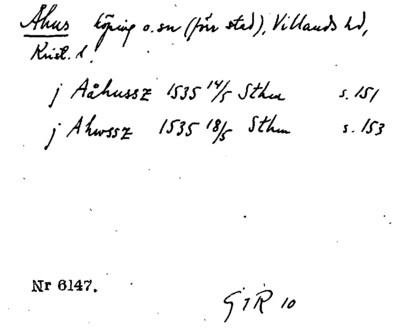 Åhus köping o. sn (förr stad), Villands hd,
Krist. l.
j Aåhussz 1535 14/5 Sthm s. 151
j Ahwssz 1535 18/5 Sthm s. 153
Nr 6147.
G I R 10